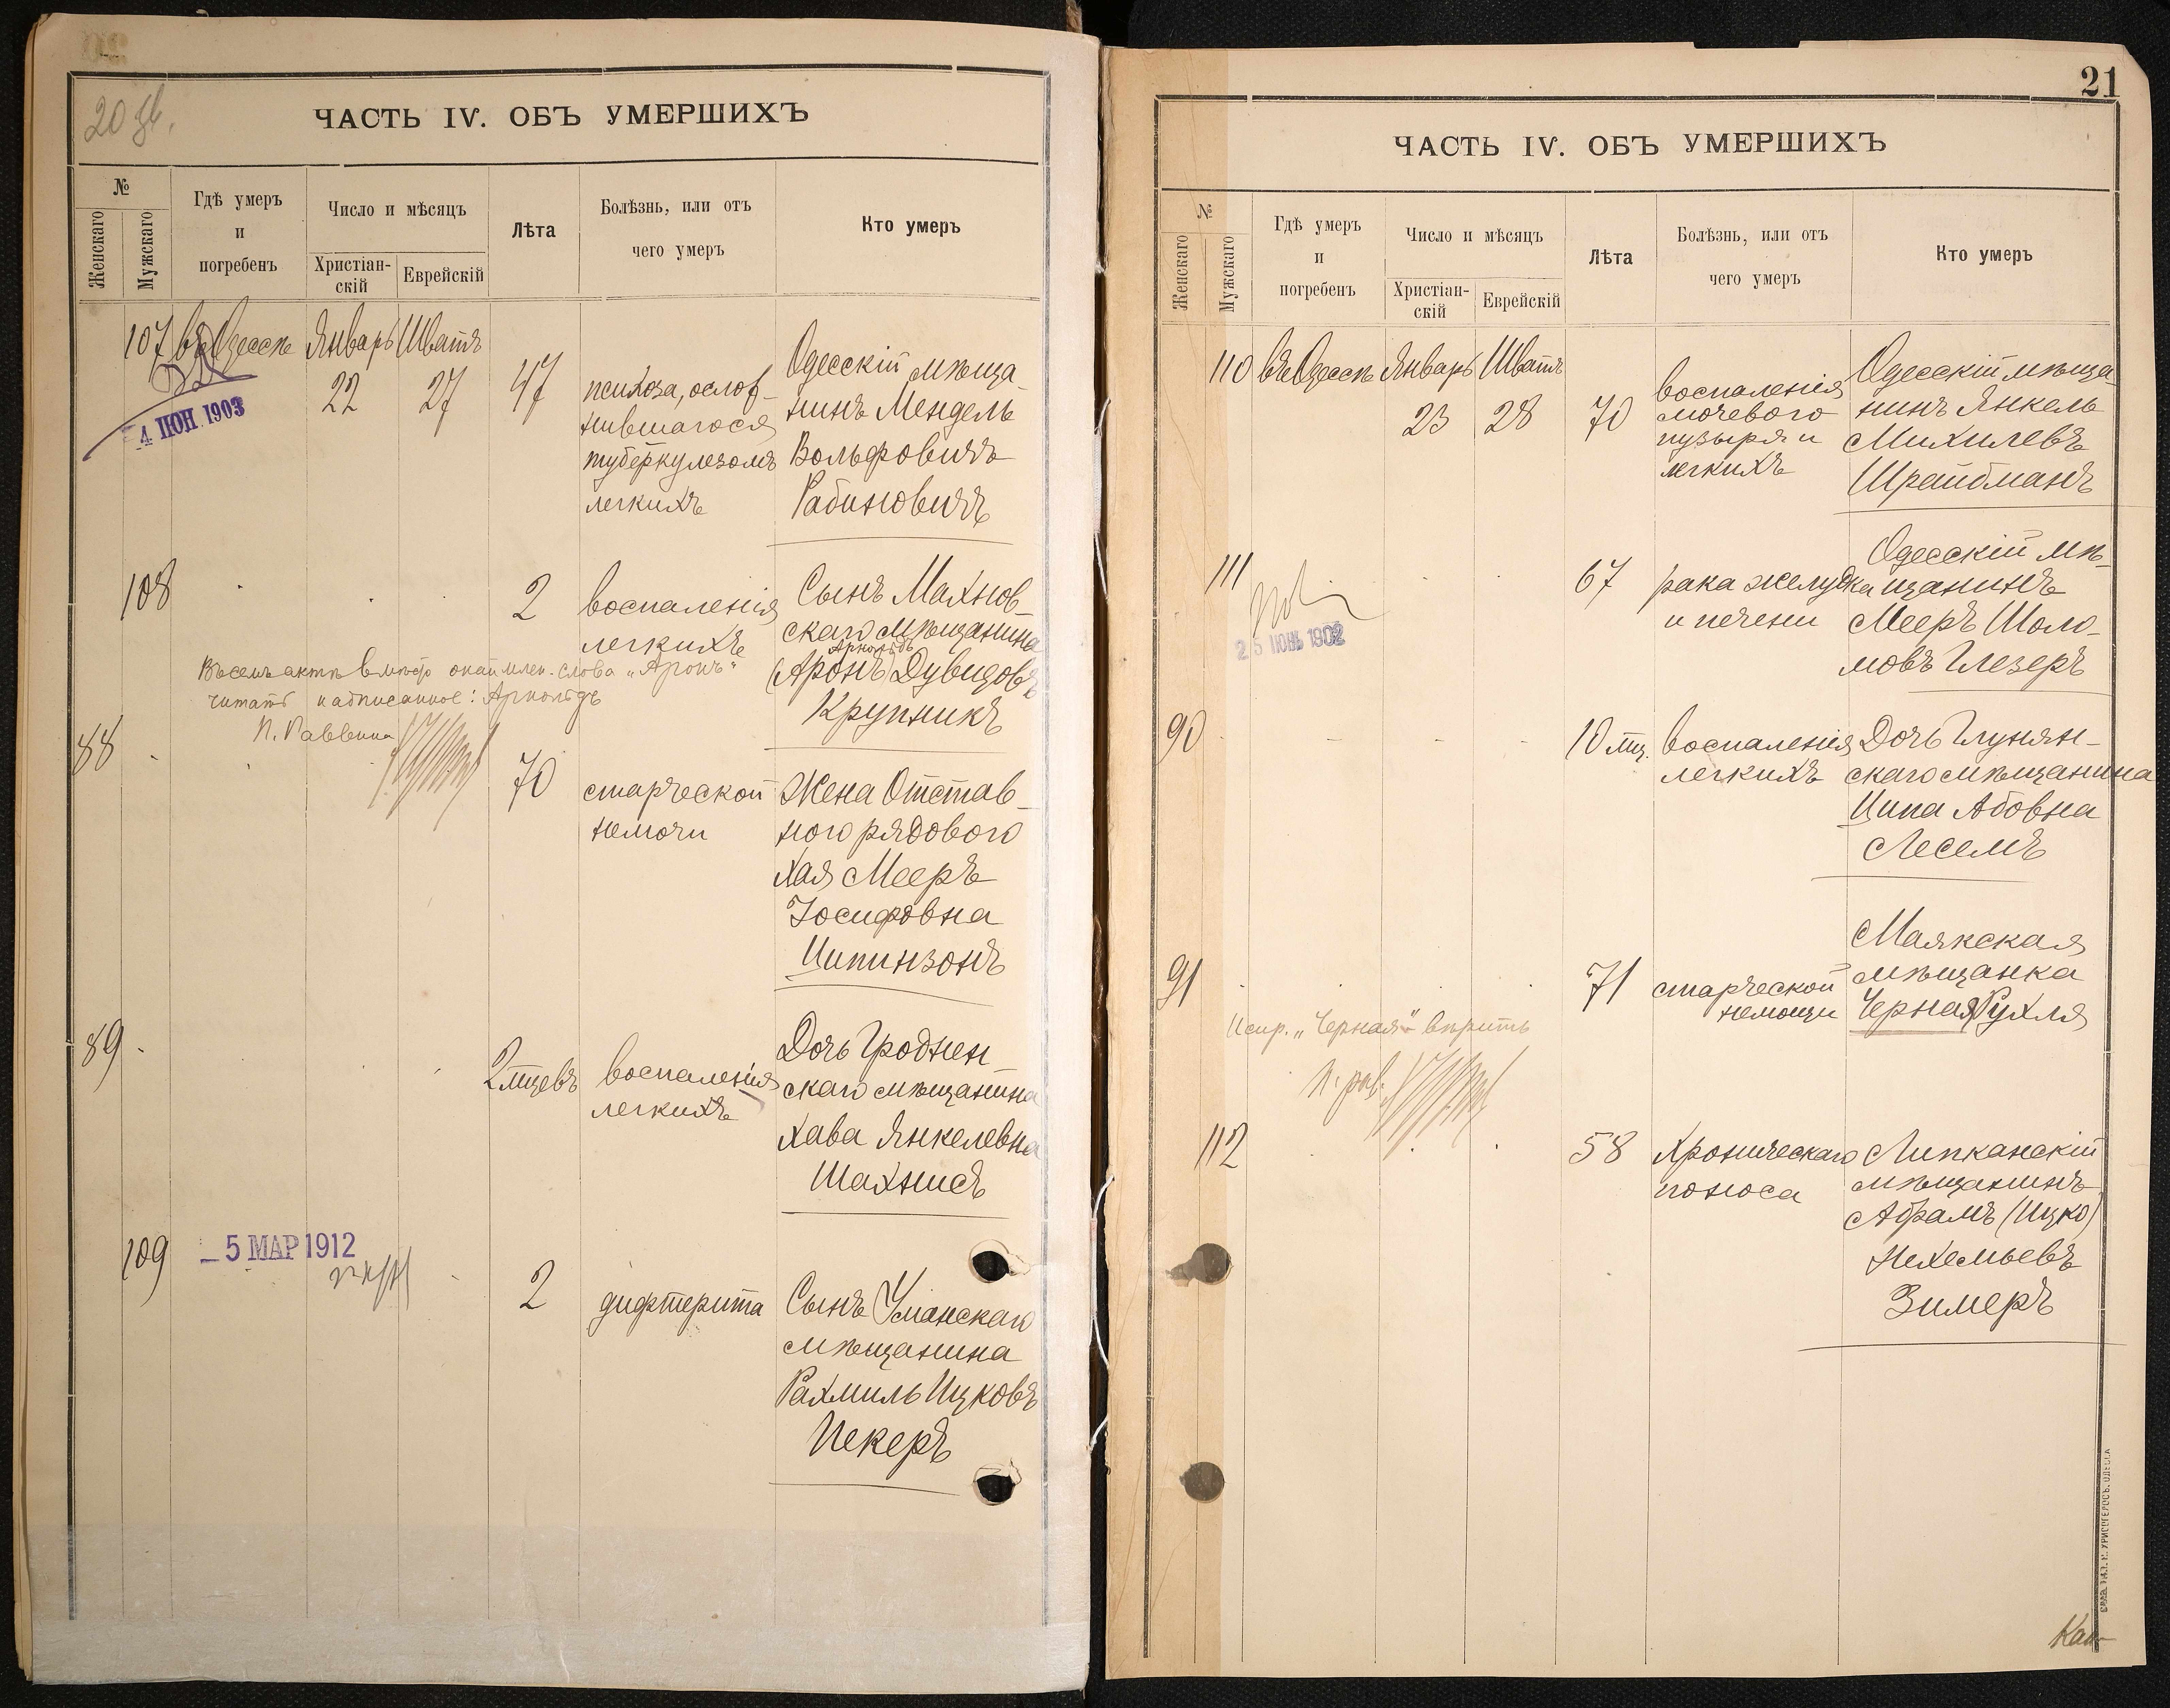 20 об.
ЧАСТЬ IV. ОБЪ УМЕРШИХЪ
№
Женскаго
Мужскаго
Гдѣ умеръ
и
погребенъ
Число и мѣсяцъ
Христіан-
скій
Еврейскій
Лѣта
Болѣзнь, или отъ
чего умеръ
Кто умеръ
107 въ Одессѣ Январь Шватъ
22 27 47
4 ІЮН 1903
психоза, ослож-
нившагося
туберкулезомъ
легкихъ
Одесскій мѣща-
нинъ Мендель
Вольфовичъ
Рабиновичъ
108
2
воспаленія
легкихъ
Сынъ Махнов-
скаго мѣщанина
Арнольдъ
(Аронъ) Дувидовъ
Крупникъ
Въ семъ актѣ вмѣсто окаймлен. слова „Аронъ“
читать надписанное: Арнольдъ
П. Раввина
88
70
старческой
немочи
Жена Отстав-
ного рядового
Хая Мееръ
Іосифовна
Ципинзонъ
89
2 мцевъ
воспаленія
легкихъ
Дочь Гроднен
скаго мѣщанина
Хава Янкелевна
Шахнисъ
109
5 МАР 1912
2
дифтерита
Сынъ Уманскаго
мѣщанина
Рахмиль Ицковъ
Пекеръ
21
ЧАСТЬ IV. ОБЪ УМЕРШИХЪ
№
Женскаго
Мужскаго
Гдѣ умеръ
и
погребенъ
Число и мѣсяцъ
Христіан-
скій
Еврейскій
Лѣта
Болѣзнь, или отъ
чего умеръ
Кто умеръ
110 въ Одессѣ Январь Шватъ
23 28 70
воспаленія
мочевого
пузыря и
легкихъ
Одесскій мѣща-
нинъ Янкель
Михилевъ
Шрайбманъ
111
25 ІЮНЬ 1902
67
рака желудка
и печени
Одесскій мѣ-
щанинъ
Мееръ Шоло-
мовъ Глезеръ
90
10 мц.
воспаленія
легкихъ
Дочь Глунян-
скаго мѣщанина
Ципа Абовна
Лесемъ
91
71
старческой
немощи
Маякская
мѣщанка
Черная Рухля
Испр. „Черная“ вѣрить
П. рав.
112
58
Хроническаго
поноса
Липканскій
мѣщанинъ
Абрамъ (Ицко)
Нехемьевъ
Зимеръ